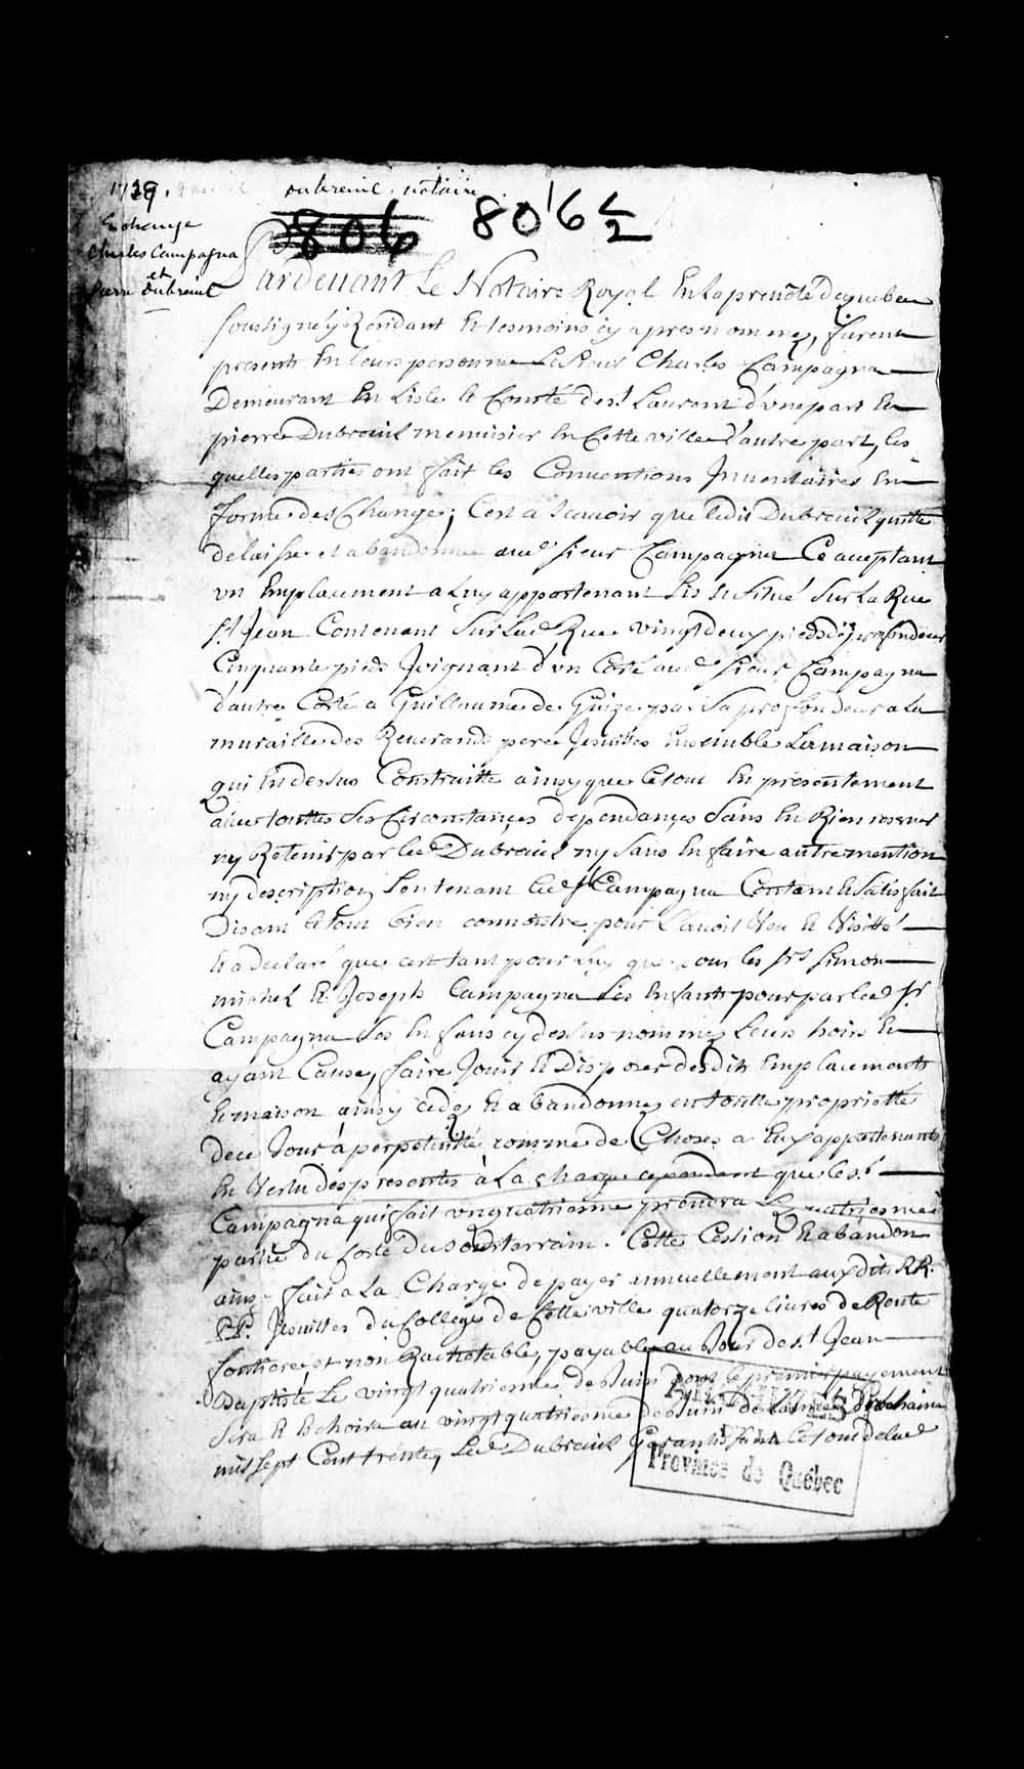 1729.
dubreuil notaire
806
80'6 1/2
Echange
Charles Campagna
et
Pierre dubreuil
Pardevant Le Notaire Royal En la prevôté de quebec
soussigné y Residant Et tesmoins cy apres nommez, furent
presents En leurs personne Le Sieur Charles Campagna
Demeurant En Lisle et Comté de St Laurent d'vne part Et
pierre Dubreuil menuisier En Cette ville d'autre part, les
quelles parties ont fait les Conventions En
forme deschange; Cest a scavoir que ledit Dubreuil quitte
delaisse et abandonne aud sieur Campagna Ce acceptant
vn Emplacement a Luy appartenant sis et situé sur La Rue
St Jean Contenant sur Lad Rue vingt deux pieds profondeur
Cinquante pieds Joignant d'vn Costé aud sieur Campagna
d'autre Costé a Guillaume de Guize par sa profondeur a La
muraille des Reverands peres Jesuittes Ensemble La maison
qui En dessus Construitte ainsy que le tout En presentement
avec touttes ses Circonstances dependances sans En Rien reserver
ny Retenir par led Dubreuil ny sans En faire autre mention
ny description, led Sr Campagna Contant Et satisfait
Disant le tout bien connoistre pour L'avoir Veu Et Visitté
Et a declaré que cest tant pour Luy que pour les Srs Simon
michel Et Joseph Campagna ses Enfants pour par led Sr
Campagna ses Enfans cy dessus nommez Leurs hoirs Et
ayant Cause, faire Jouir Et Disposer desdits Emplacements
Et maison ainsy cedez Et abandonnez en toutte proprietté
de ce Jour à perpetuitté comme de Choses a Eux appartenants
En Vertu des presentes à La charge cependant que led Sr
Campagna qui fait vn quatrieme prendra Le quatriesme
partie du costé du . Cette Cession Et abandon
ainsy fait a La Charge de payer annuellement auxdits RR.
PP. Jesuittes du College de Cette ville quatorze livres de Rente
fontiere et non Rachetable, payable au Jour de St Jean
Baptiste Le vingt quatrieme de Juin dont le premier payement
sera Et Echoira au vingt quatrieme de Juin de Lannée prochaine
mil sept Cent trente, Led Dubreuil le tout delad
Province de Québec